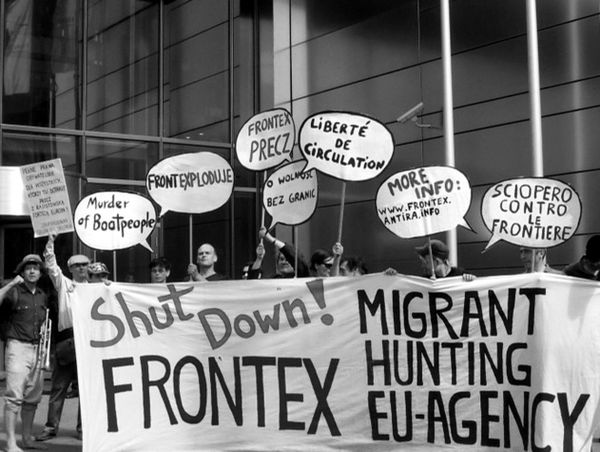 PEŁNE PRAWA
DLA WSZYSTKICH
KTÓRZY TU
Murder
of Boatpeople
FRONTEXPLODUJE
FRONTEX
PRECZ
O WOLNOŚĆ
BEZ GRANIC
LIBERTÉ
DE
CIRCULATION
MORE
INFO:
WWW.FRONTEX.
ANTIRA.INFO
SCIOPERO
CONTRO
LE
FRONTIERE
Shut Down!
FRONTEX
MIGRANT
HUNTING
EU-AGENCY